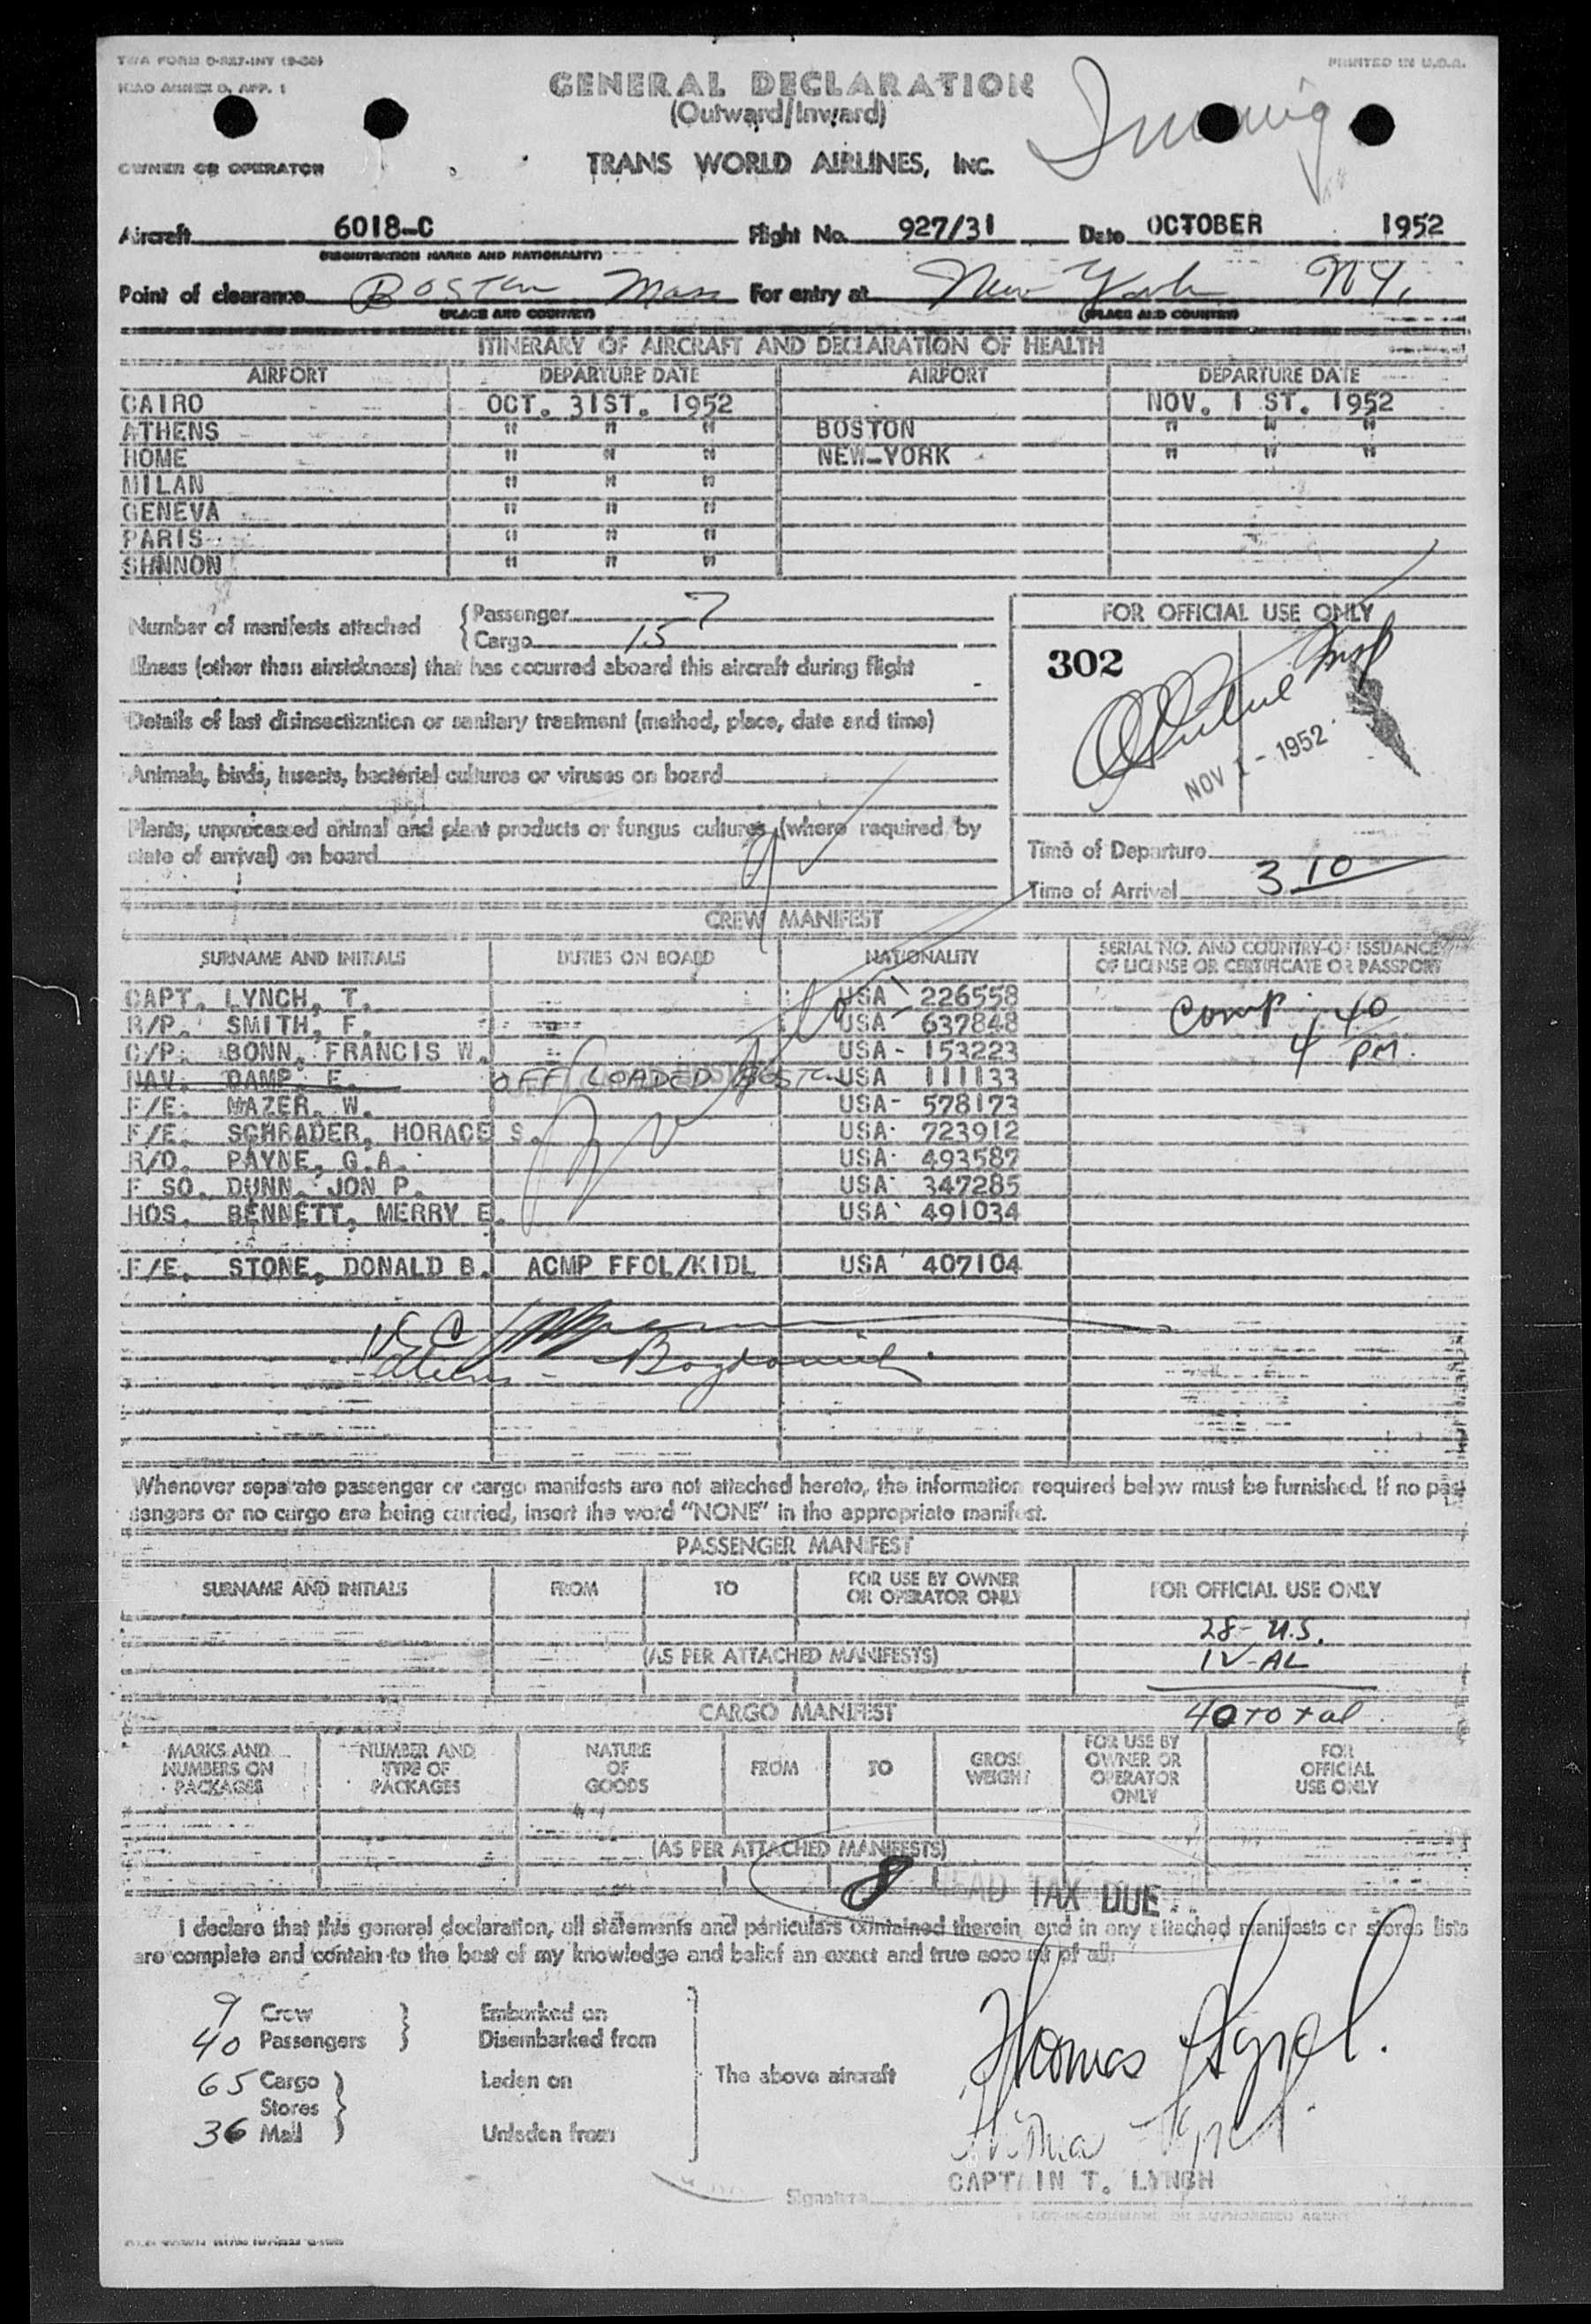 TWA FORM O-827-INT (9-50)
PRINTED IN U.S.A.
ICAO ANNEX 9, APP. 1
GENERAL DECLARATION
(Outward/Inward)
OWNER OR OPERATOR
TRANS WORLD AIRLINES, INC.
Aircraft 6018-C Flight No. 927/31 Date OCTOBER 1952
(REGISTRATION MARKS AND NATIONALITY)
Point of clearance Boston Mass For entry at New York N.Y.
(PLACE AND COUNTRY) (PLACE AND COUNTRY)
ITINERARY OF AIRCRAFT AND DECLARATION OF HEALTH
AIRPORT DEPARTURE DATE AIRPORT DEPARTURE DATE
CAIRO OCT. 31ST. 1952 NOV. 1 ST. 1952
ATHENS " " " BOSTON " " "
ROME " " " NEW-YORK " " "
MILAN " " "
GENEVA " " "
PARIS " " "
SHANNON " " "
Number of manifests attached { Passenger 7
{ Cargo 15
FOR OFFICIAL USE ONLY
302
NOV 1 - 1952
Illness (other than airsickness) that has occurred aboard this aircraft during flight
Details of last disinsectization or sanitary treatment (method, place, date and time)
Animals, birds, insects, bacterial cultures or viruses on board
Plants, unprocessed animal and plant products or fungus cultures (where required by
state of arrival) on board
Time of Departure
Time of Arrival 3 10
CREW MANIFEST
SURNAME AND INITIALS DUTIES ON BOARD NATIONALITY SERIAL NO. AND COUNTRY OF ISSUANCE
OF LICENSE OR CERTIFICATE OR PASSPORT
CAPT. LYNCH, T. USA 226558
R/P. SMITH, F. USA - 637848 Comp. 4 40
C/P. BONN, FRANCIS W. USA - 153223 PM
NAV. DAMP, E. OFF LOADED BOSTON USA 111133
F/E. MAZER, W. USA - 578173
F/E. SCHRADER, HORACE S. USA 723912
R/O. PAYNE, G.A. USA 493587
F SO. DUNN, JON P. USA 347285
HOS. BENNETT, MERRY E. USA 491034
F/E. STONE, DONALD B. ACMP FFOL/KIDL USA 407104
Whenever separate passenger or cargo manifests are not attached hereto, the information required below must be furnished. If no pas-
sengers or no cargo are being carried, insert the word "NONE" in the appropriate manifest.
PASSENGER MANIFEST
SURNAME AND INITIALS FROM TO FOR USE BY OWNER
OR OPERATOR ONLY FOR OFFICIAL USE ONLY
28 - U.S.
(AS PER ATTACHED MANIFESTS) 12 - AL
40 total
CARGO MANIFEST
MARKS AND
NUMBERS ON
PACKAGES NUMBER AND
TYPE OF
PACKAGES NATURE
OF
GOODS FROM TO GROSS
WEIGHT FOR USE BY
OWNER OR
OPERATOR
ONLY FOR
OFFICIAL
USE ONLY
(AS PER ATTACHED MANIFESTS)
8 HEAD TAX DUE
I declare that this general declaration, all statements and particulars contained therein, and in any attached manifests or stores lists
are complete and contain to the best of my knowledge and belief an exact and true account of all:
9 Crew } Embarked on
40 Passengers } Disembarked from
65 Cargo } Laden on The above aircraft
Stores }
36 Mail } Unladen from
CAPTAIN T. LYNCH
Signature